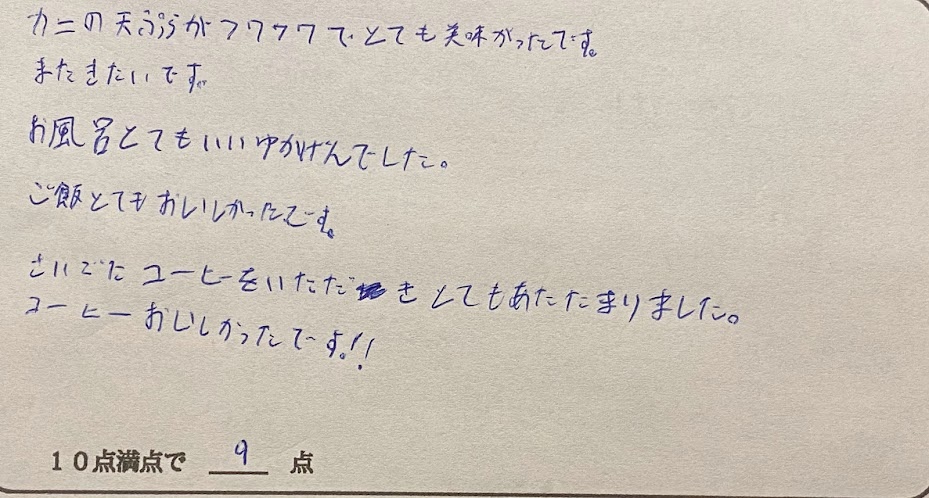 カニの天ぷらがフワフワでとても美味がったでです。
またきたいです。
お風呂とてもいいゆかげんでした。
ご飯とてもおいしかったです。
さいごた コーヒーをいただき とてもあたたまりました。
コーヒーおいしかったです。!!
10点満点で 9 点